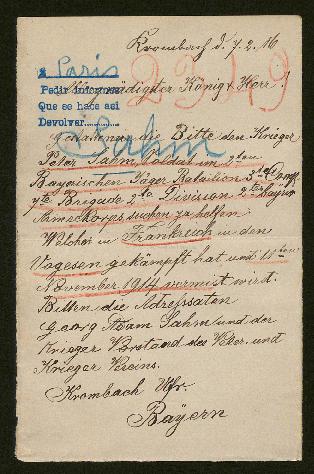 Krombach d. 7.2.16
a Paris
2349
Allergnädigster König & Herr!
Pedir informes
Que se hace así
Devolver
Sahm
die Bitte den Krieger
Peter Sahm Soldat im 2ten
Bayerischen Jäger Batailion 3te Comp.
4te Brigade 2te Division 2ter bayer.
Armeekorps, suchen zu helfen
Welcher in Frankreich in den
Vogesen gekämpft hat und 11ten
November 1914 vermist wird.
Bitten die Adressaten
Georg Adam Sahm und der
Krieger Vorstand des Veter. und
Krieger Vereins.
Krombach Ufr.
Bayern